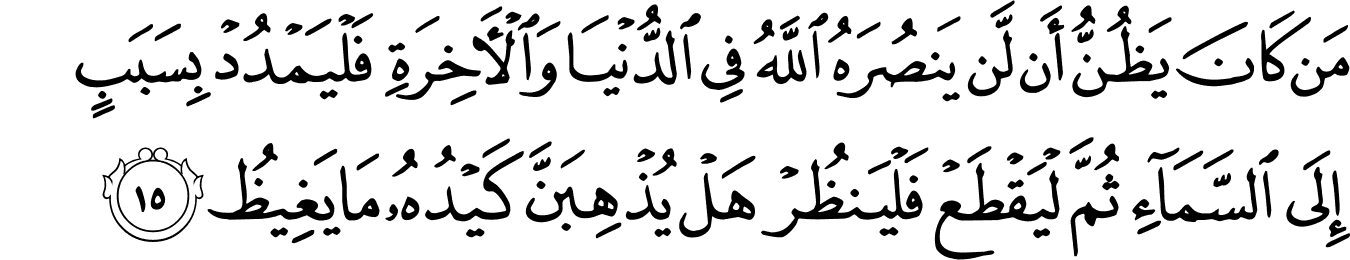 مَن كَانَ يَظُنُّ أَن لَّن يَنصُرَهُ ٱللَّهُ فِى ٱلدُّنْيَا وَٱلْأَخِرَةِ فَلْيَمْدُدْ بِسَبَبٍ
إِلَى ٱلسَّمَآءِ ثُمَّ لْيَقْطَعْ فَلْيَنظُرْ هَلْ يُذْهِبَنَّ كَيْدُهُۥ مَا يَغِيظُ ١٥